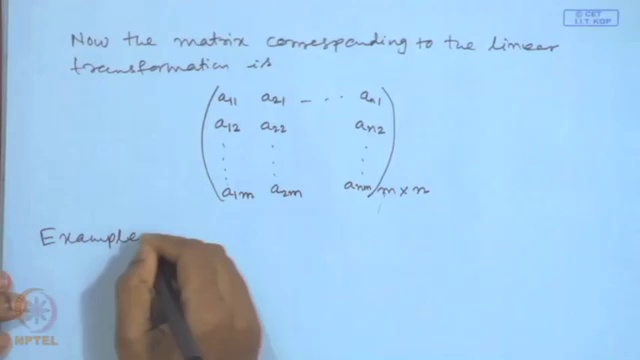 © CET
I.I.T. KGP
Now the matrix corresponding to the linear
transformation is
a11 a21 - ... an1
a12 a22 an2
⋮ ⋮ ⋮
a1m a2m anm m × n
Example
NPTEL